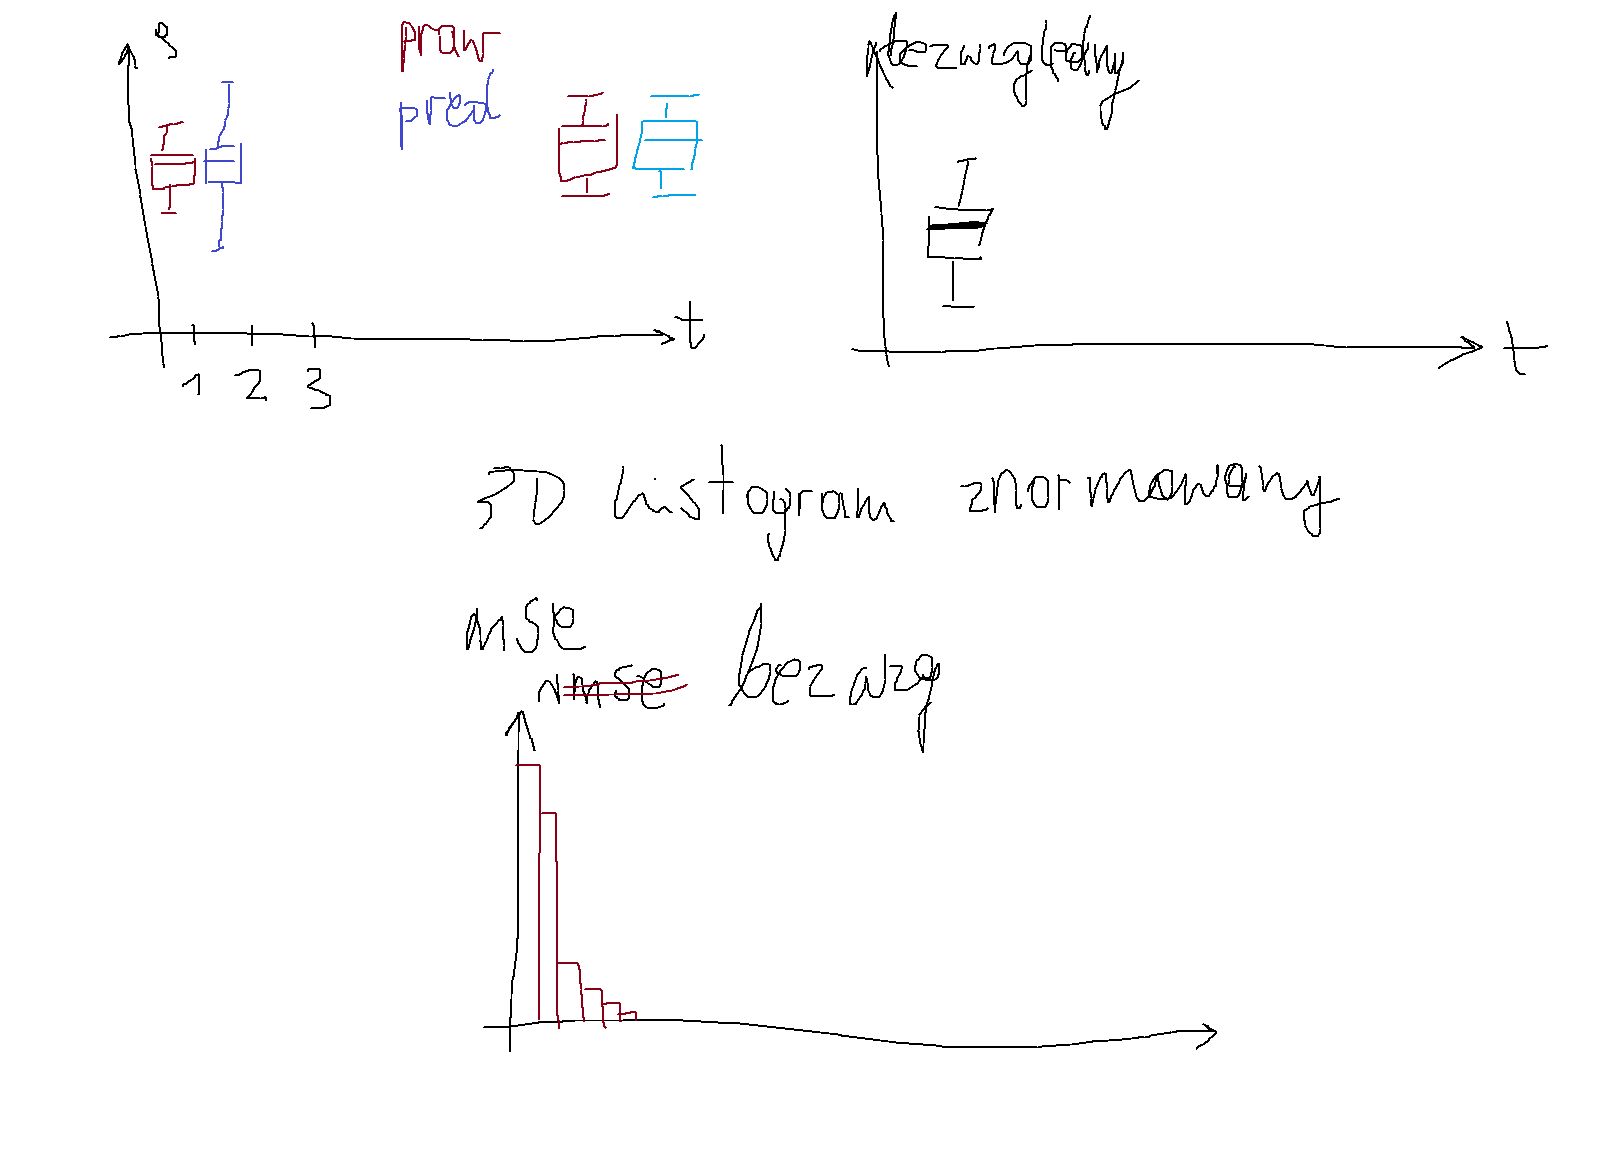 praw
pred
t
1 2 3
bezwzgledny
t
3D histogram znormowany
mse
bezwzg